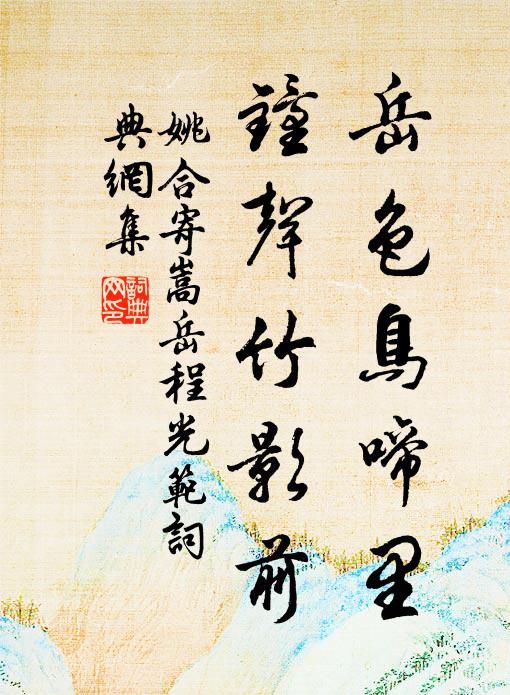 岳色鳥啼里
鐘聲竹影前
姚合寄嵩岳程光範詞
典網集
詞典
网印